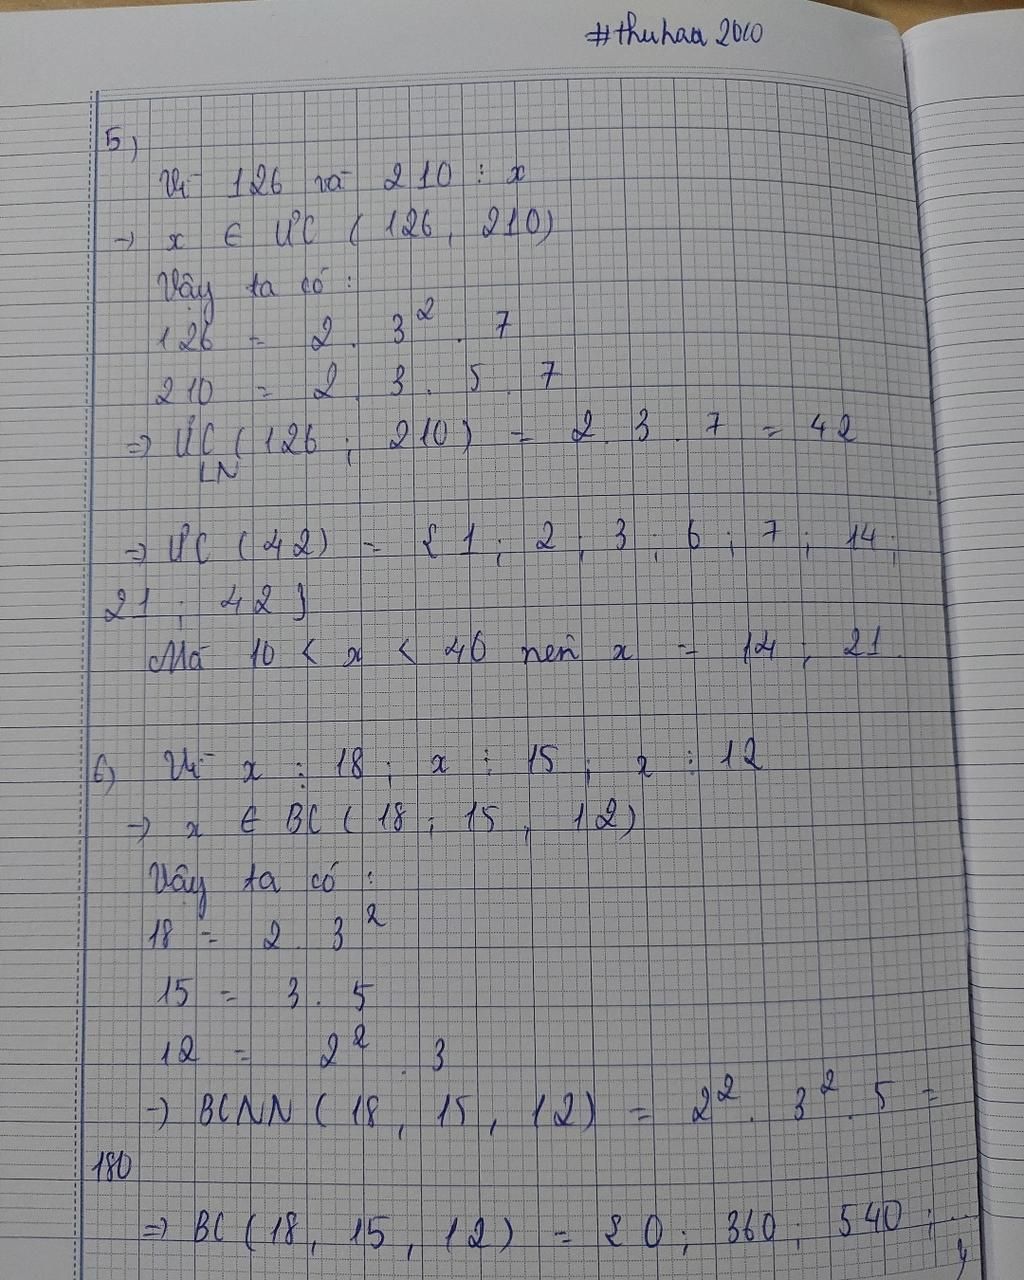 #thuhaa 2010
5)
Vì 126 và 210 ⋮ x
→ x ∈ ƯC ( 126, 210)
Vậy ta có :
126 = 2 . 3² . 7
210 = 2 . 3 . 5 . 7
⇒ ƯCLN (126 ; 210) = 2 . 3 . 7 = 42
⇒ ƯC (42) = { 1 ; 2 ; 3 ; 6 ; 7 ; 14 ;
21 ; 42 }
Mà 10 < x < 40 nên x = 14 ; 21
6) Vì x ⋮ 18 ; x ⋮ 15 ; x ⋮ 12
→ x ∈ BC ( 18 ; 15 , 12)
Vậy ta có :
18 = 2 . 3²
15 = 3 . 5
12 = 2² . 3
→ BCNN ( 18 , 15 , 12) = 2² . 3² . 5 =
180
⇒ BC (18 , 15 , 12) = { 0 ; 360 , 540 ; ...
}